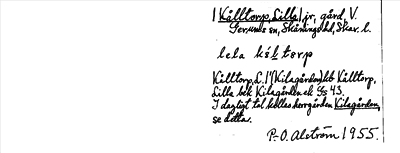 Kålltorp, Lilla, jr, gård, V.
Gerums sn, Skånings hd, Skar. l.
lela kóltorp
Kålltorp, L. l. (Kilagården) hb Kålltorp,
Lilla bek Kilagården ek Gs 43.
I dagligt tal kallas herrgården Kilagården,
se detta.
P.-O. Alström 1955.